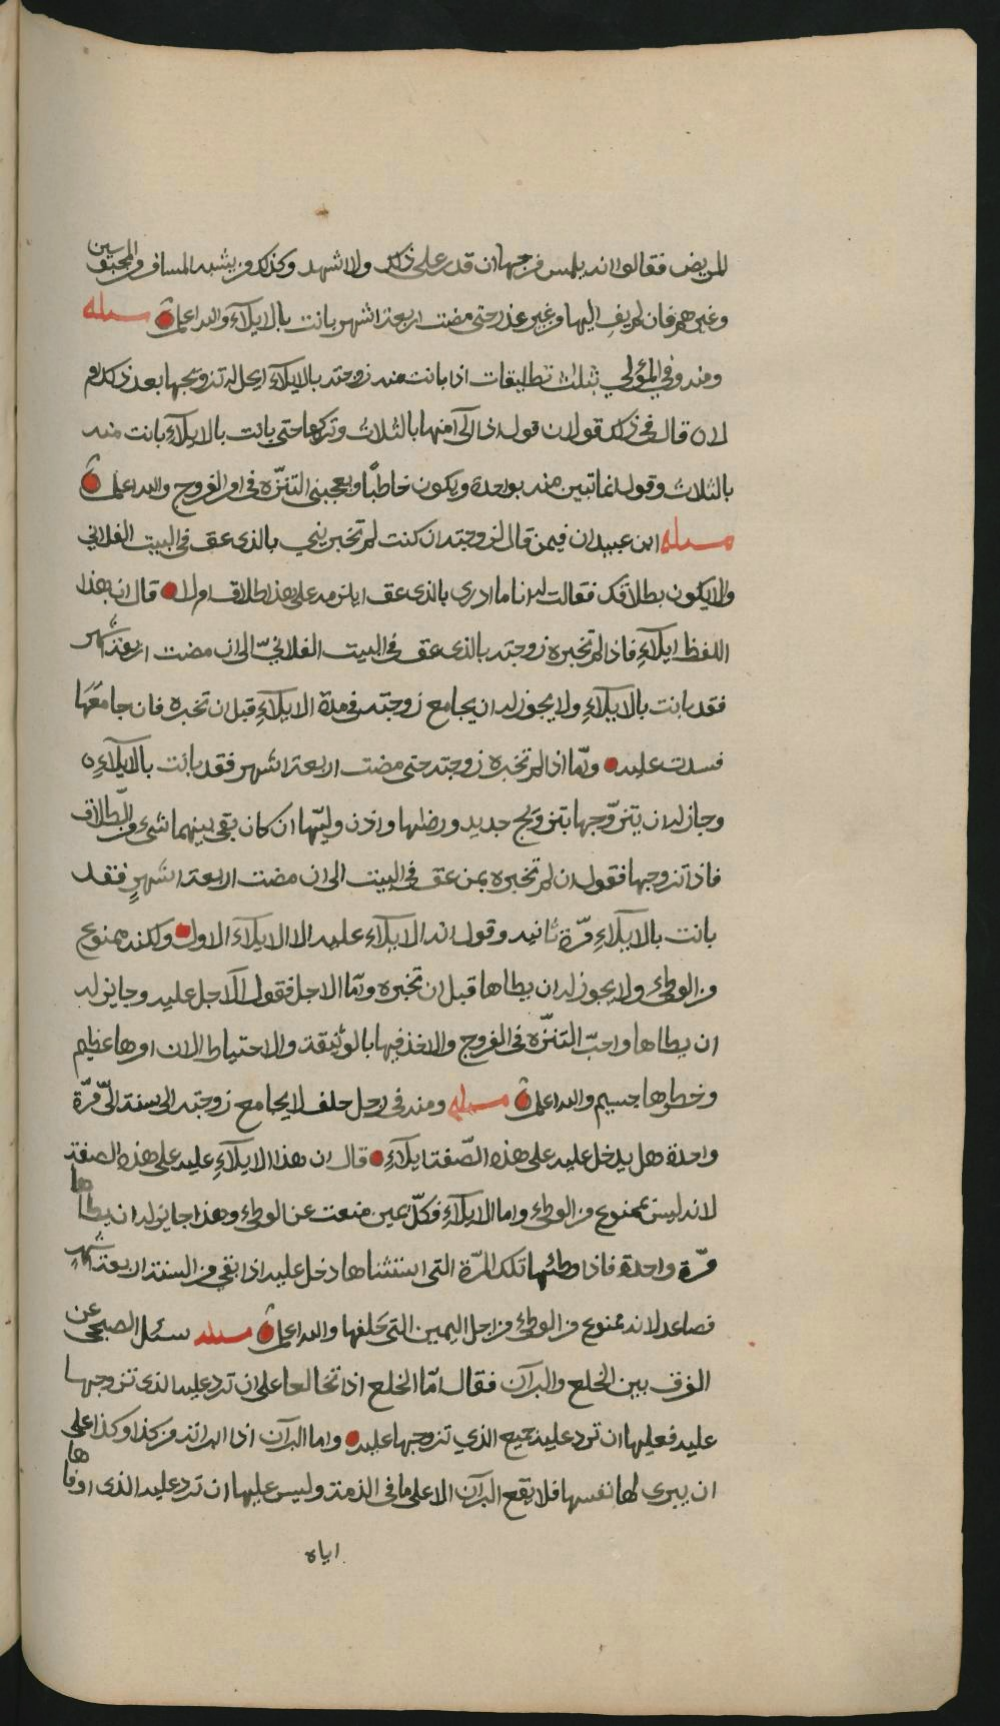 المريض فقالوا انه يلمس فرجها ان قدر على ذلك ولا اشهد وكذلك من يشبه المسافر والمحبوسين
وغيرهم فان لم يفِ اليها من غير عذر حتى مضت اربعة اشهر بانت بالايلاء والله اعلم مسئله
ومنه وفي المؤلي بثلاث تطليقات اذا بانت منه زوجته بالايلاء ايحل له تزويجها بعد ذلك ام
لا ه قال في ذلك قولان قول اذا آلى منها بالثلاث وتركها حتى بانت بالايلاء بانت منه
بالثلاث وقول انما تبين منه بواحدة ويكون خاطبًا ويعجبني التنزّه في امر الفروج والله اعلم
مسئله ابن عبيدان فيمن قال لزوجته ان كنت لم تخبريني بالذي عق في البيت الفلاني
والا يكون بطلاقك فقالت له انا ما ادري بالذي عق ايلزمه على هذا طلاق ام لا قال ان هذا
اللفظ ايلاءِ فاذا لم تخبره زوجته بالذي عق في البيت الفلانيّ الى ان مضت اربعة اشهر
فقد بانت بالايلاءِ ولا يجوز له ان يجامع زوجته في مدة الايلاءِ قبل ان تخبره فان جامعَهَا
فسدت عليه وامّا اذا لم تخبره زوجته حتى مضت اربعة اشهر فقد بانت بالايلاءِ ه
وجاز له ان يتزوّجها بتزويج جديد ورضاها واذن وليّها ان كان بقي بينهما شيء من الطّلاق
فاذا تزوجها فقول ان لم تخبره بمن عق في البيت الى ان مضت اربعة اشهرٍ فقد
بانت بالايلاءِ مرّة ثانيه وقول انه لا ايلاء عليه الا الايلاء الاول ولكنه ممنوع
من الوطيء ولا يجوز له ان يطاها قبل ان تخبره وامّا الاجل فقول لا اجل عليه وجايز له
ان يطاها واحبّ التنزّه في الفروج والاخذ فيها بالوثيقة والاحتياط لان امرها عظيم
وخطرها جسيم والله اعلم مسئله ومنه في رجل حلف لا يجامع زوجته الى سنة الّا مرّة
واحدة هل يدخل عليه على هذه الصّفة ايلاءِ قال ان هذا لا ايلاءِ عليه على هذه الصفة
لانه ليس بممنوع من الوطيء واما الايلاءِ فكلّ يمين منعت عن الوطيء وهذا جايز له ان يطاها
مرّة واحدة فاذا وطئها تلك المرّة التي استثناها دخل عليه اذا بقي من السنة اربعة اشهر
فصاعدا لانه ممنوع من الوطيء من اجل اليمين التي حلفها والله اعلم مسئله سئل الصبحي عن
الفرق بين الخلع والبرآن فقال امّا الخلع اذا تخالعا على ان ترد عليه الذي تزوجها
عليه فعليها ان ترد عليه جميع الذي تزوجها عليه واما البرآن اذا ابراته من كذا وكذا على
ان يبرى لها نفسها فلا يقع البرآن الا على ما في الذمة وليس عليها ان ترد عليه الذي اوفاها
اياه